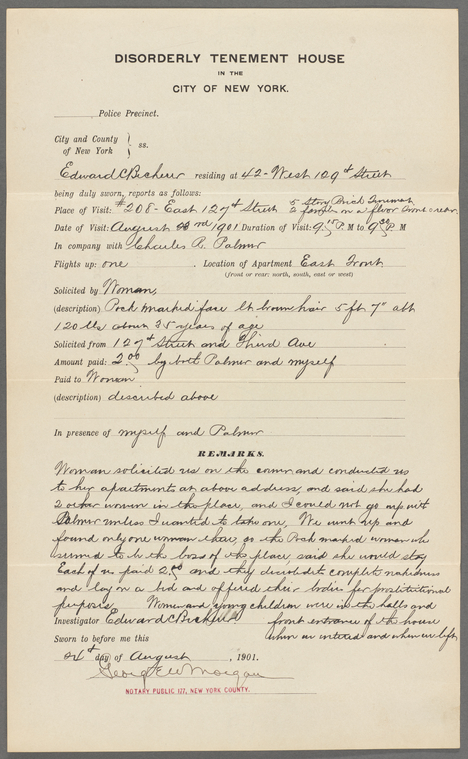 DISORDERLY TENEMENT HOUSE
IN THE
CITY OF NEW YORK.
Police Precinct.
City and County
of New York } ss.
Edward C Becherer residing at 42-West 129th Street
being duly sworn, reports as follows:
Place of Visit: #208- East 127th Street 5 Story Brick Tenement
2 familys on a floor front & rear
Date of Visit: August 2nd 1901 Duration of Visit: 9 15 P.M to 9 30 P. M
In company with Charles R. Palmer
Flights up: one . Location of Apartment East Front
(front or rear: north, south, east or west)
Solicited by Woman,
(description) Pock marked face lt brown hair 5 ft 7" abt
120 lbs about 35 years of age
Solicited from 127th Street and Third Ave
Amount paid: 2.00 by both Palmer and myself
Paid to Woman
(description) described above
In presence of myself and Palmer
REMARKS.
Woman solicited us on the corner and conducted us
to her apartments at above address, and said she had
2 other women in the place, and I could not go up with
Palmer unless I wanted to take one, We went up and
found only one woman there, so the Pock marked woman who
seemed to be the boss of the place, said she would stay
Each of us paid 2.00 and they disrobed to complete nakedness
and lay on a bed and offered their bodies for prostitutional
purposes Women and young children were in the halls and
Investigator Edward C front entrance of the house
Sworn to before me this when we entered and when we left.
day of August , 1901.
George E W Morgan
NOTARY PUBLIC 127, NEW YORK COUNTY.